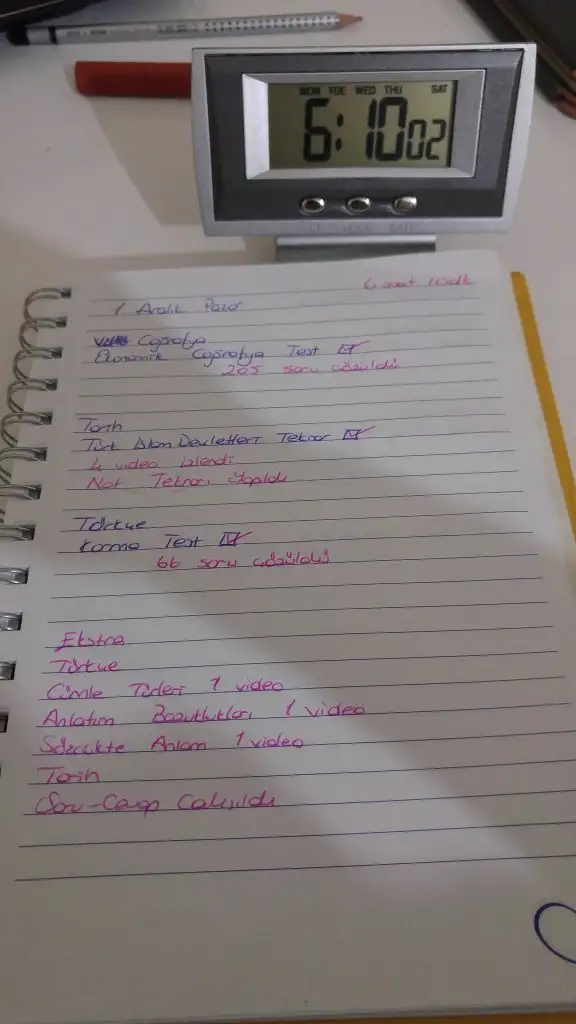 MON TUE WED THU SAT
6:10 02
6 saat 10dk
1 Aralık Pazar
Coğrafya
Ekonomik Coğrafya Test ☑
205 soru çözüldü
Tarih
Türk İslam Devletleri Tekrar ☑
4 video izlendi
Not Tekrarı Yapıldı
Türkçe
Karma Test ☑
66 soru çözüldü
Ekstra
Türkçe
Cümle Türleri 1 video
Anlatım Bozuklukları 1 video
Sözcükte Anlam 1 video
Tarih
Soru-Cevap Çalışıldı